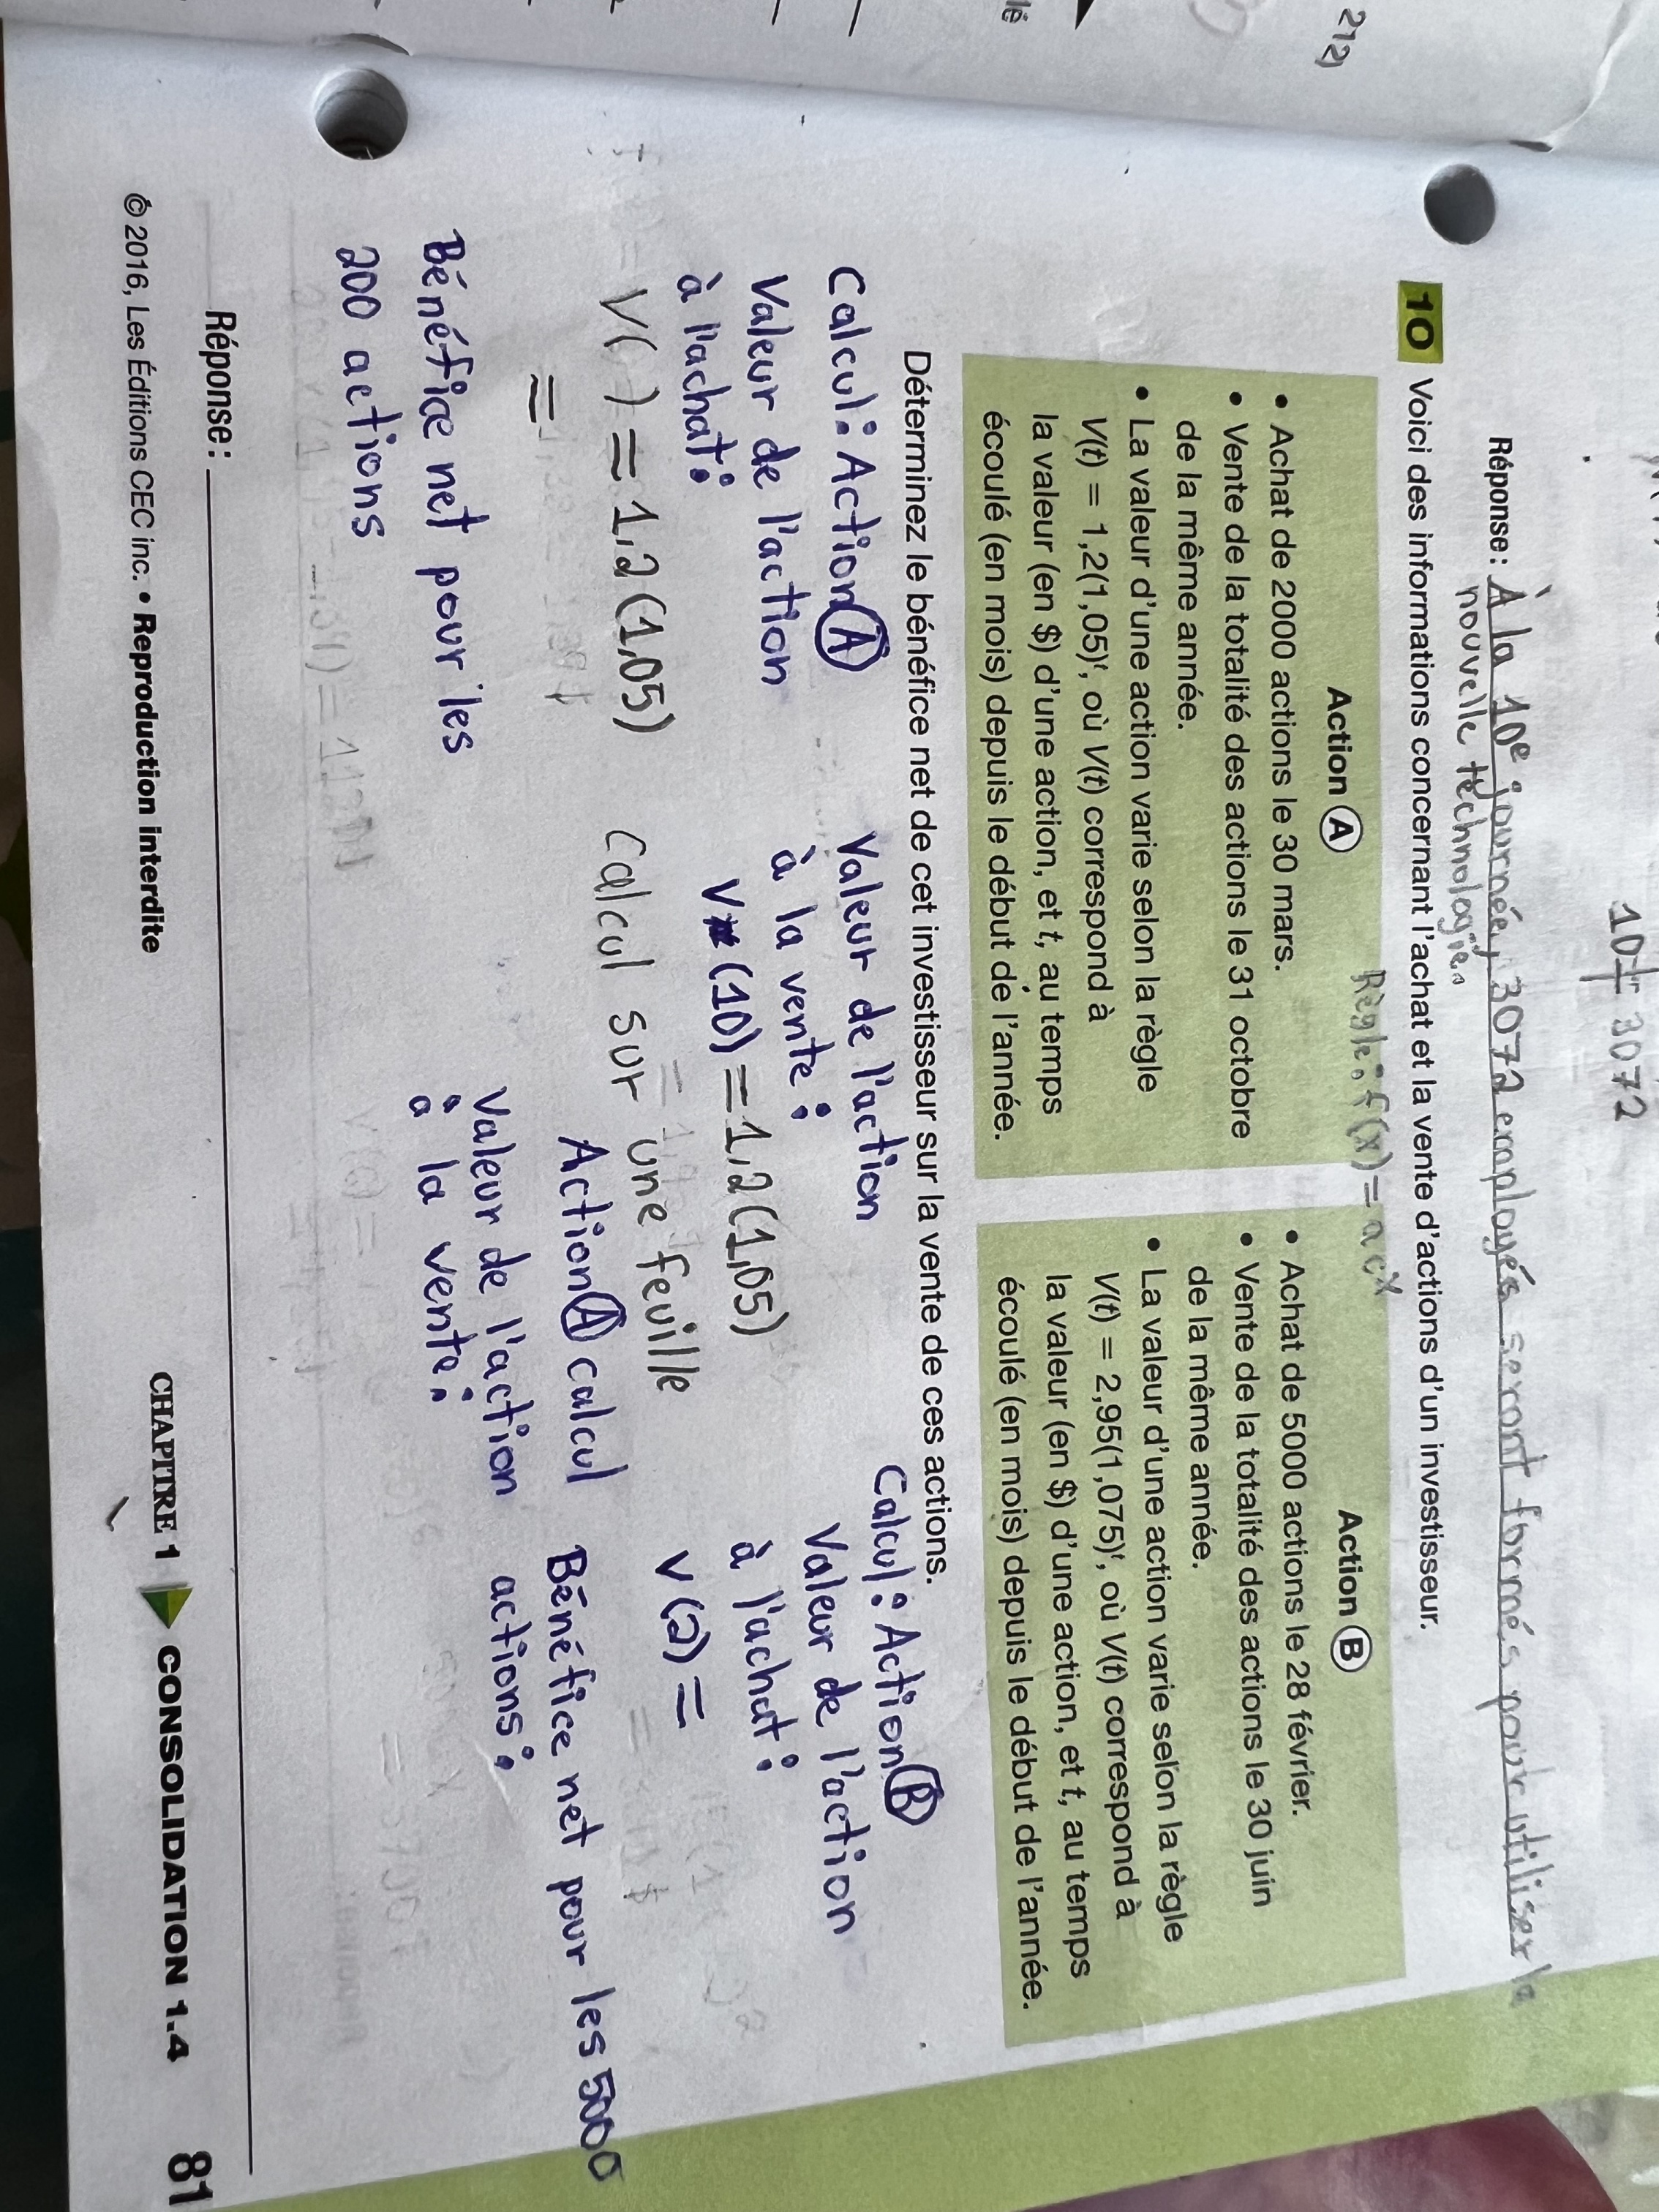 212)
10 + 3072
Réponse : À la 10e journée, 3072 employés seront formés pour utiliser la
nouvelle technologie.
10 Voici des informations concernant l'achat et la vente d'actions d'un investisseur.
Règle: f(x) = acˣ
Action A
• Achat de 2000 actions le 30 mars.
• Vente de la totalité des actions le 31 octobre
de la même année.
• La valeur d'une action varie selon la règle
V(t) = 1,2(1,05)ᵗ, où V(t) correspond à
la valeur (en $) d'une action, et t, au temps
écoulé (en mois) depuis le début de l'année.
Action B
• Achat de 5000 actions le 28 février.
• Vente de la totalité des actions le 30 juin
de la même année.
• La valeur d'une action varie selon la règle
V(t) = 2,95(1,075)ᵗ, où V(t) correspond à
la valeur (en $) d'une action, et t, au temps
écoulé (en mois) depuis le début de l'année.
Déterminez le bénéfice net de cet investisseur sur la vente de ces actions.
Calcul: Action A
Valeur de l'action
à l'achat:
V( ) = 1,2(1,05)
=
Bénéfice net pour les
200 actions
Valeur de l'action
à la vente:
V(10) = 1,2(1,05)
calcul sur une feuille
Action A calcul
Valeur de l'action
à la vente:
Calcul: Action B
Valeur de l'action
à l'achat:
V(2) =
Bénéfice net pour les 5000
actions:
Réponse :
© 2016, Les Éditions CEC inc. • Reproduction interdite
CHAPITRE 1 CONSOLIDATION 1.4 81